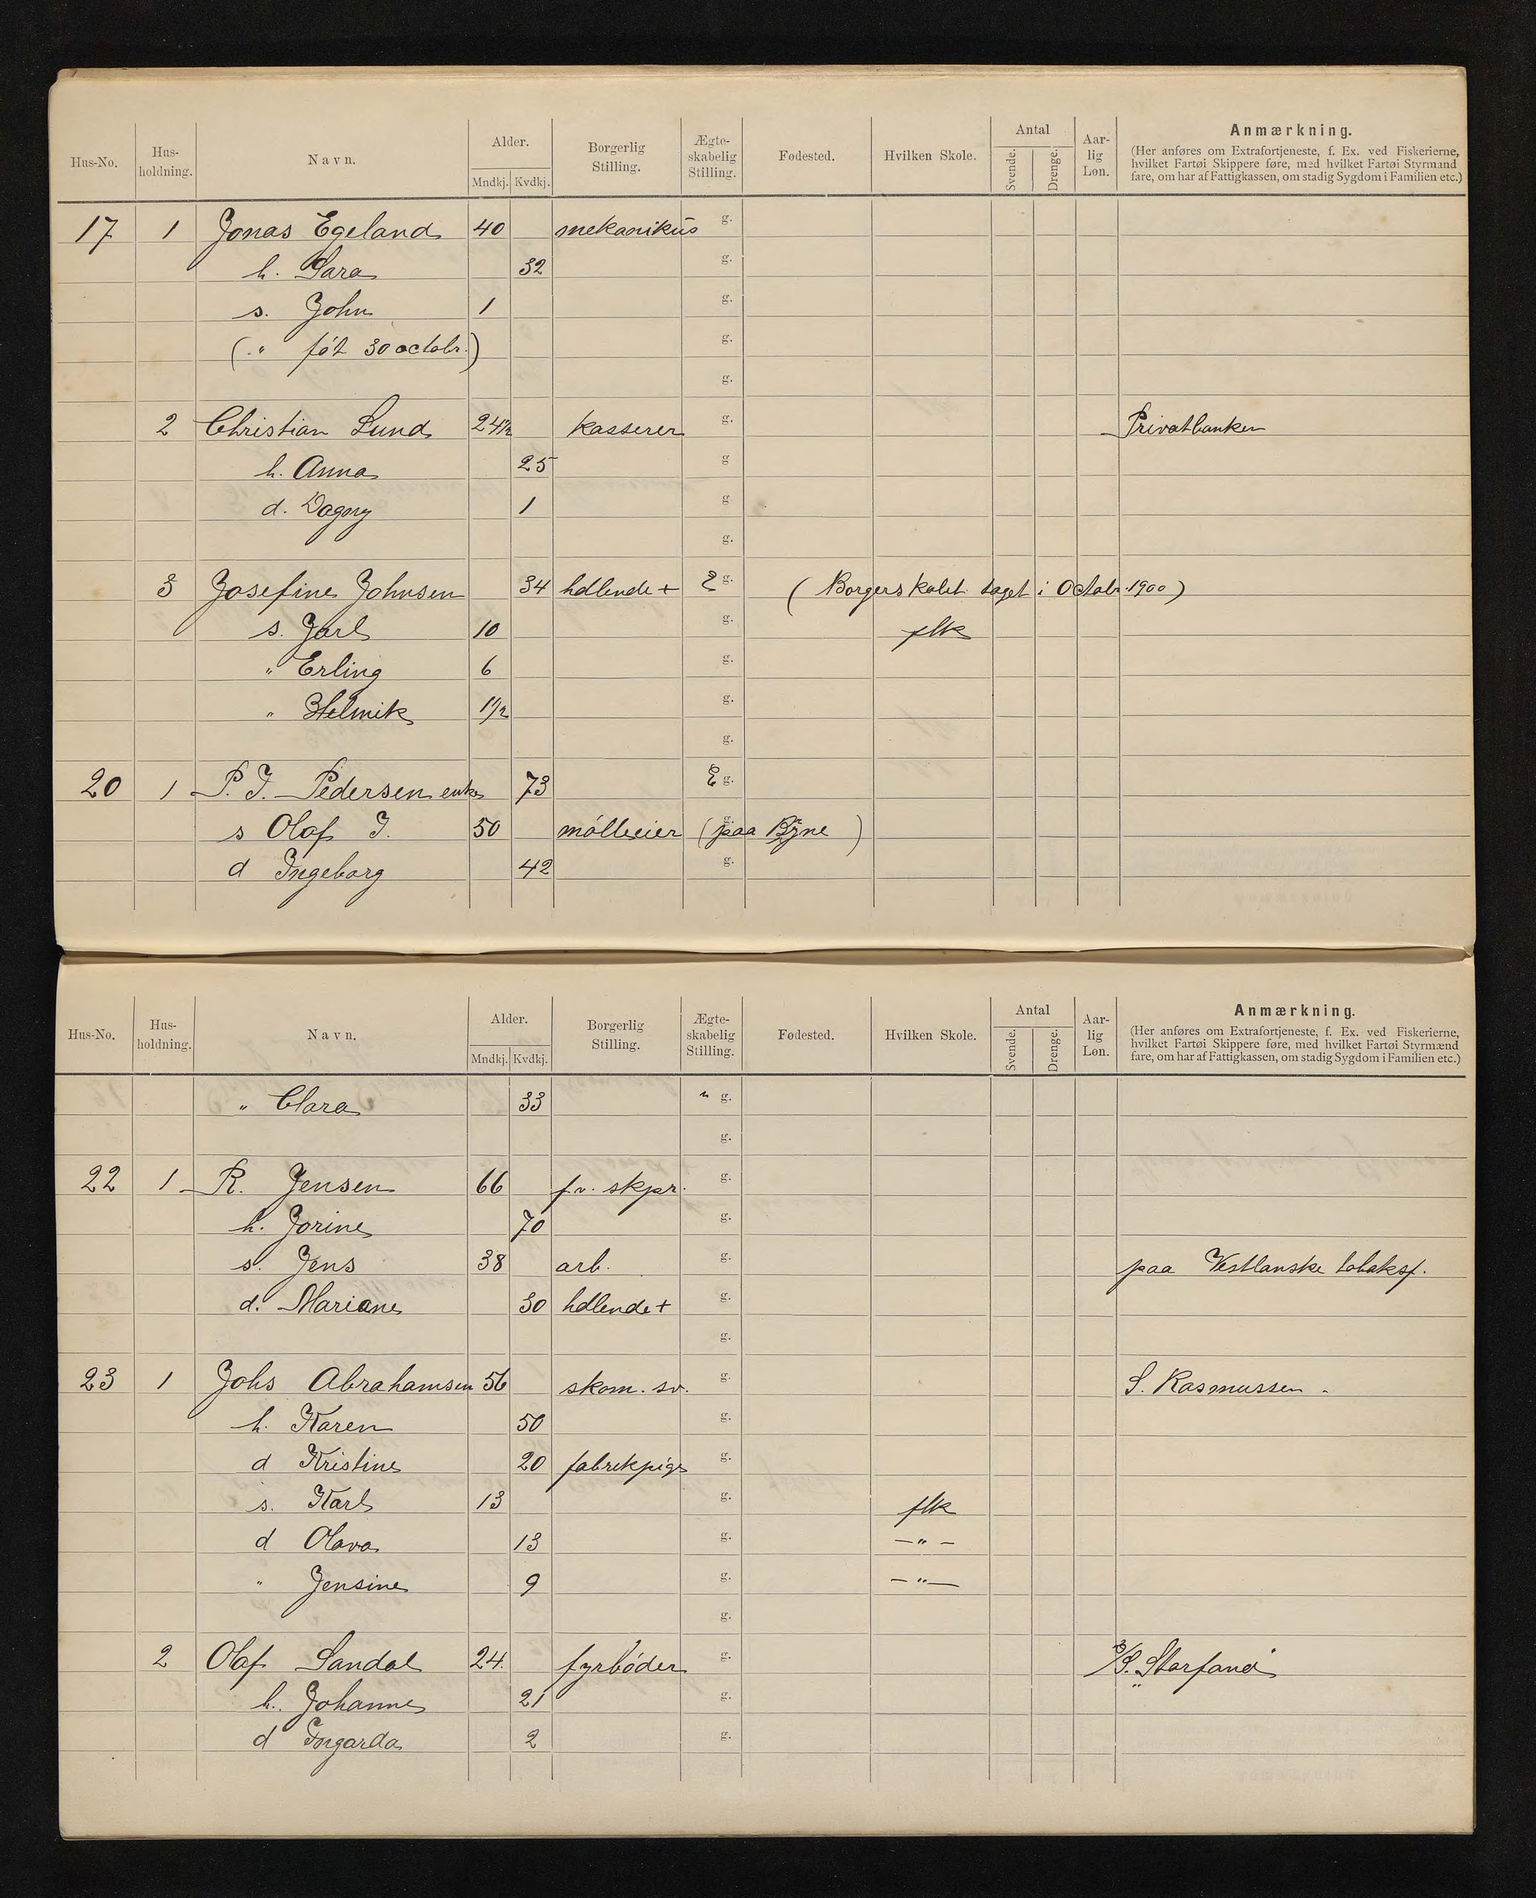 Hus-No. Hus-holdning. Navn. Alder. Mndkj. Kvdkj. Borgerlig Stilling. Ægte-skabelig Stilling. Fødested. Hvilken Skole. Antal Svende. Drenge. Aar-lig Løn. Anmærkning.
(Her anføres om Extrafortjeneste, f. Ex. ved Fiskerierne,
hvilket Fartøi Skippere føre, med hvilket Fartøi Styrmænd
fare, om har af Fattigkassen, om stadig Sygdom i Familien etc.)
17 1 Jonas Egeland 40 mekanikus g.
h. Sara 32 g.
s. John 1 g.
(" føt 30 octobr.) g.
g.
2 Christian Lund 24½ kasserer g. Privatbanken
h. Anna 25 g
d. Dagny 1 g.
g.
3 Josefine Johnsen 34 hdlende + E g. (Borgerskabet taget i Octobr. 1900)
s. Jarl 10 g. flk
" Erling 6 g.
" Helmik 1½ g.
g.
20 1 P. J. Pedersen enke 73 E g.
s Olaf J. 50 mølleeier (paa Bryne) g.
d Ingeborg 42 g.
Hus-No. Hus-holdning. Navn. Alder. Mndkj. Kvdkj. Borgerlig Stilling. Ægte-skabelig Stilling. Fødested. Hvilken Skole. Antal Svende. Drenge. Aar-lig Løn. Anmærkning.
(Her anføres om Extrafortjeneste, f. Ex. ved Fiskerierne,
hvilket Fartøi Skippere føre, med hvilket Fartøi Styrmænd
fare, om har af Fattigkassen, om stadig Sygdom i Familien etc.)
" Clara 33 " g.
g.
22 1 R. Jensen 66 f.v. skpr. g.
h. Jorine 70 g.
s. Jens 38 arb. g. paa Vestlanske tobaksf.
d. Mariane 30 hdlende + g.
g.
23 1 Johs Abrahamsen 56 skom. sv. g. S. Rasmussen
h. Karen 50 g.
d Kristine 20 fabrikpige g.
s. Karl 13 g. flk
d Olava 13 g. — " —
" Jensine 9 g. — " —
g.
2 Olaf Sandal 24. fyrbøder g. S/S. "Storfond"
h. Johanne 21 g.
d Ingarda 2 g.